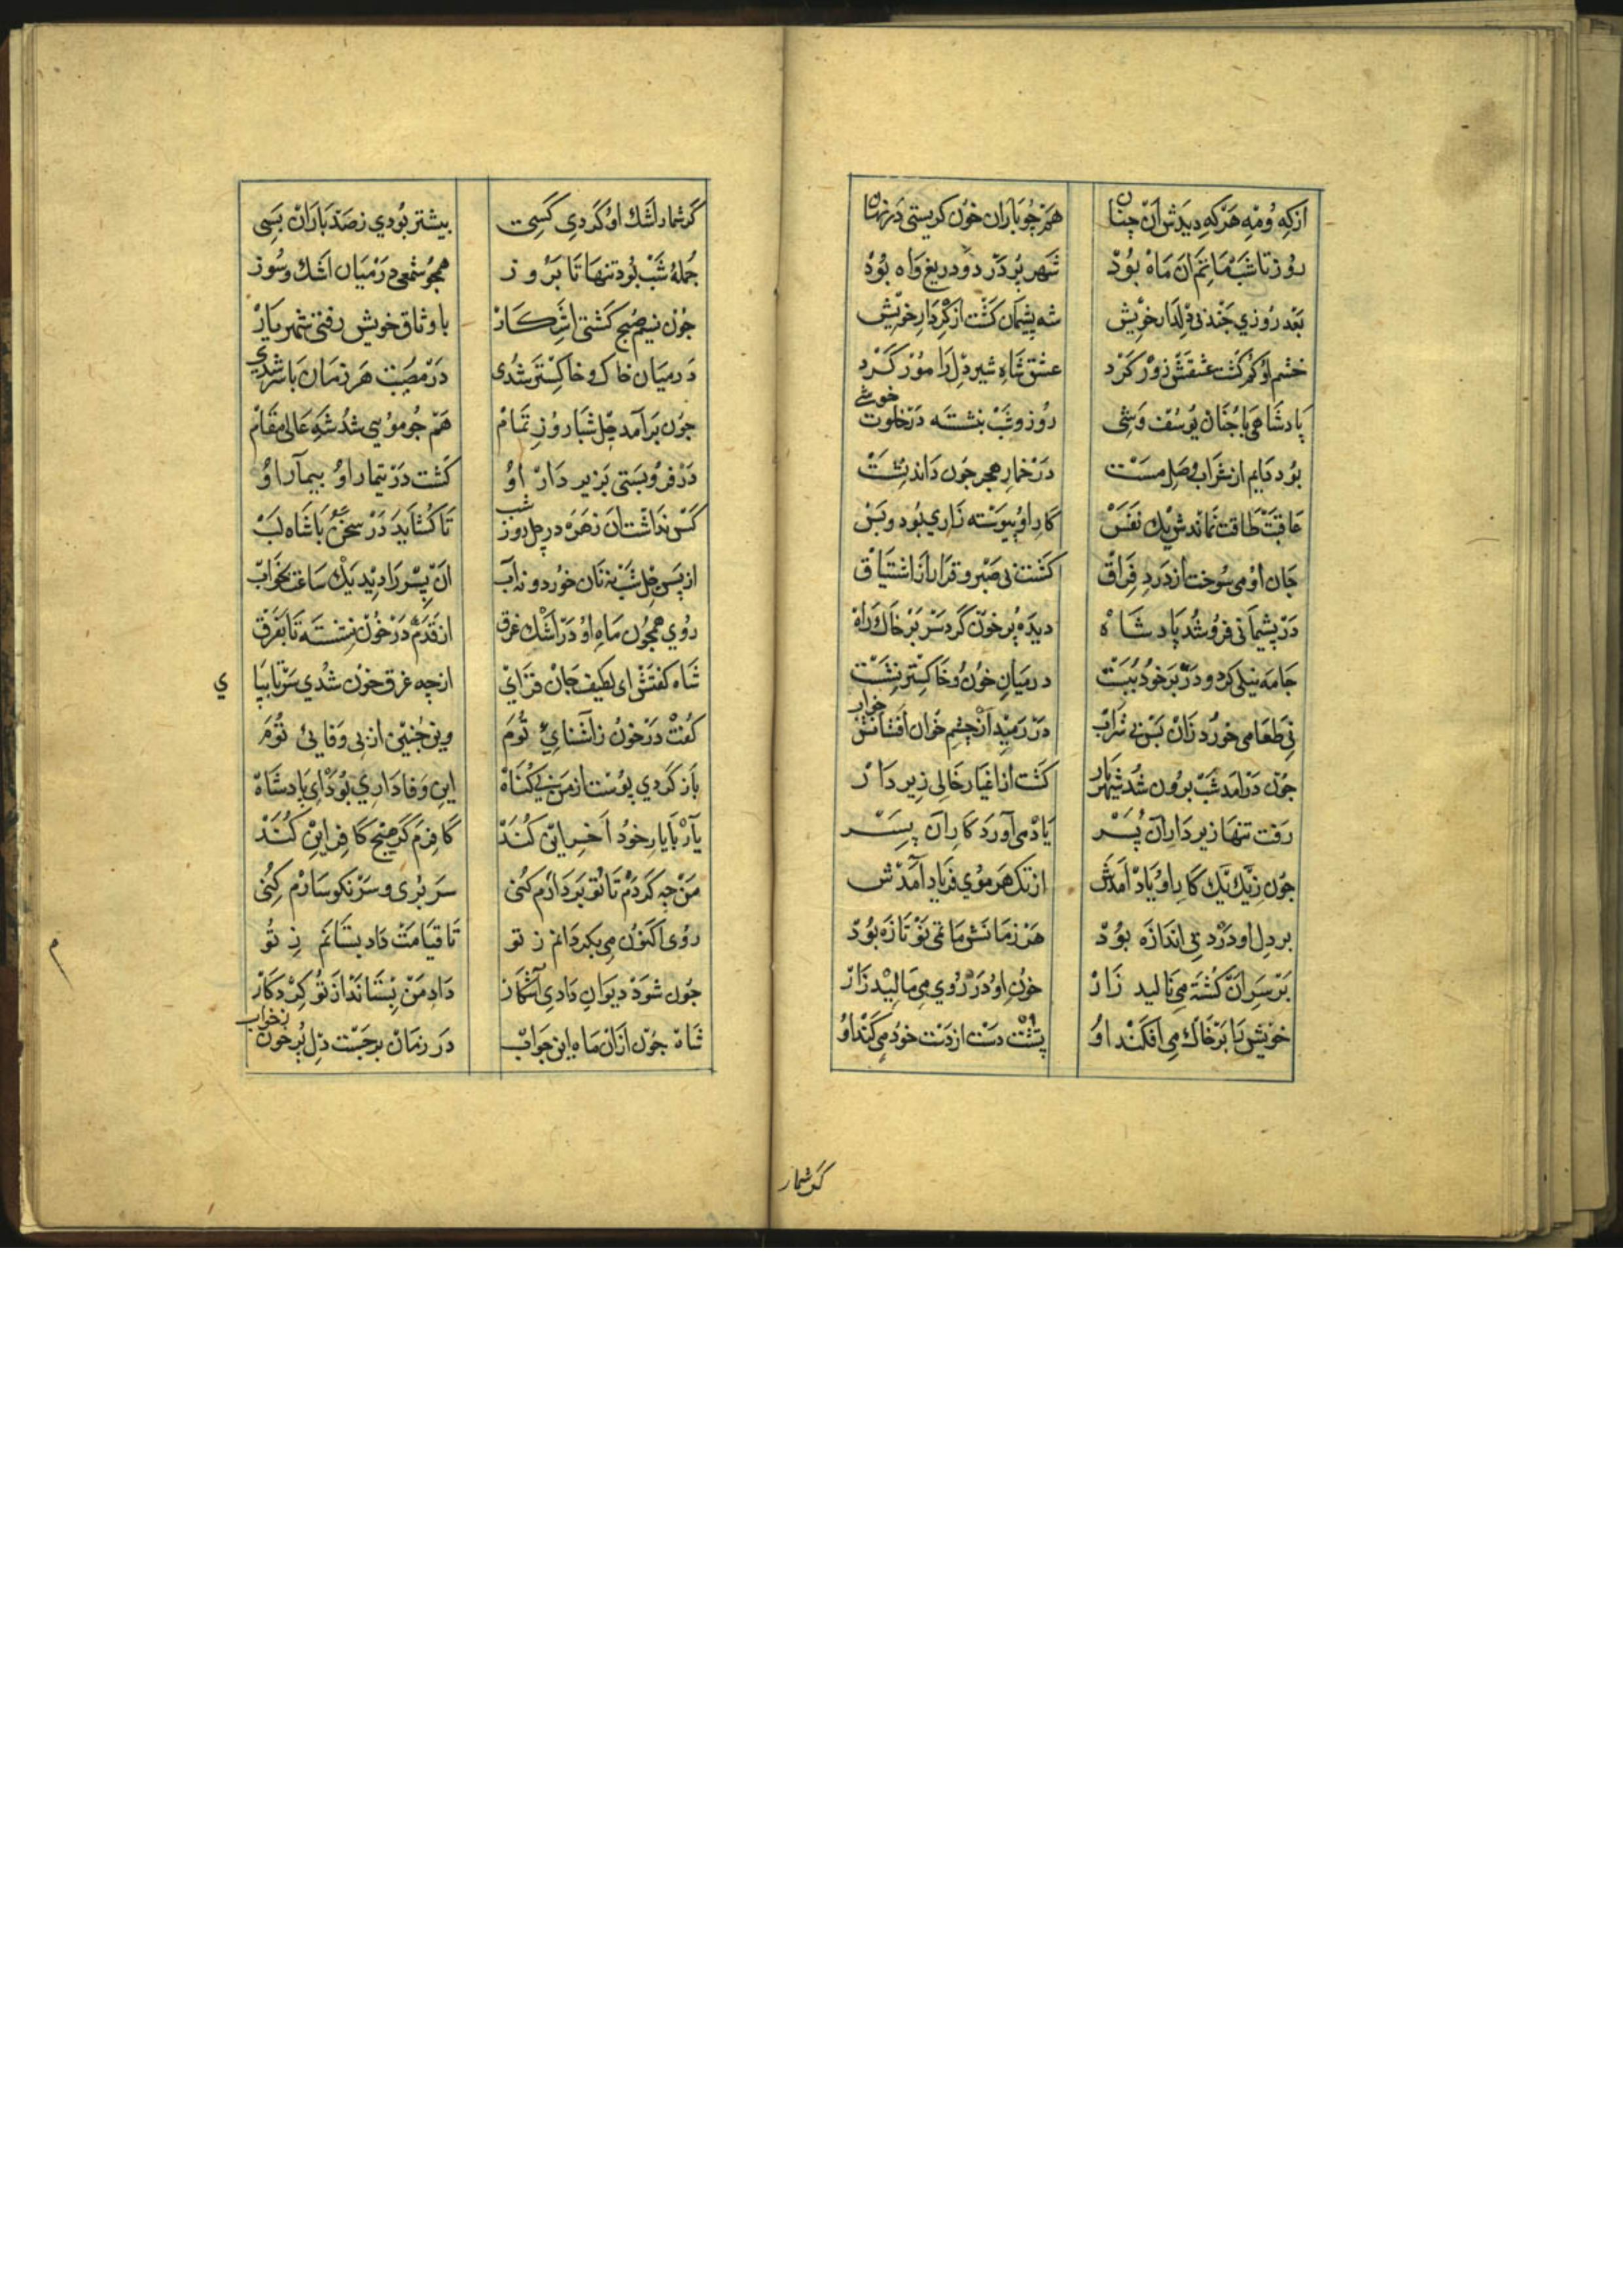 ازکه ومه هرکه دیدش آن چنان هم جو باران خون کریستی در نهان
روز تا شب ماتم آن ماه بود شهر پر درد و دریغ و آه بود
بعد روزی جند بی دلدار خویش شه پشیمان کشت از کردار خویش
خشم او کم کشت عشقش زور کرد عشق شاه شیردل را مور کرد
پادشاهی با جنان یوسف وشی روز و شب بنشسته در خلوت خوشی
بود دایم از شراب وصل مست در خمار هجر جون داند نشست
عاقبت طاقت نماندش یك نفس کار او پیوسته زاری بود و بس
جان او می سوخت از درد فراق کشت بی صبر و قرار از اشتیاق
در پشیمانی فرو شد پادشاه دیده پر خون کرد سر بر خاك راه
جامه نیلی کرد و در بر خود ببست در میان خون و خاکستر نشست
نی طعامی خورد زان بس نی شراب در رمید از جشم خون افشانش خواب
جون درامد شب برون شد شهریار کشت از اغیار خالی زیر دار
رفت تنها زیر دار آن پسر یاد می آورد کار آن پسر
جون زیك یك کار او یاد آمدش از تك هر موی فریاد آمدش
بر دل او درد بی اندازه بود هر زمانش ماتمی نو تازه بود
بر سر آن کشته می نالید زار خون او در روی می مالید زار
خویش را بر خاك می افکند او پشت دست از دست خود می کند او
کر شمار
کر شمار اشك او کردی کسی بیشتر بودی ز صد باران بسی
جمله شب بود تنها تا بروز همجو شمعی در میان اشك و سوز
جون نسیم صبح کشتی آشکار با وثاق خویش رفتی شهریار
در میان خاك و خاکستر شدی در مصیبت هر زمان با سر شدی
جون برآمد جل شبا روز تمام هم جو موسی شد شه عالی مقام
در فرو بستی بزیر دار او کشت در تیمار او بیمار او
کس نداشت آن زهره در جل روز شب تا کشاید در سخن با شاه لب
از پس جل شب نه نان خورد و نه آب آن پسر را دید یك ساعت بخواب
روی همجون ماه او در اشك غرق از قدم در خون نشسته تا بفرق
شاه کفتش ای لطیف جان فزای ازجه غرق خون شدی سر تا بپا
ی
کفت در خون ز آشنایی توم وین جنین از بی وفایی توم
باز کردی پوست از من بی کناه این وفاداری بود ای پادشاه
یار با یار خود آخر این کند کافرم کر هیج کافر این کند
من جه کردم تا تو بر دارم کنی سر بری و سر نکوسارم کنی
روی اکنون می بکردانم ز تو تا قیامت داد بستانم ز تو
جون شود دیوان دادی آشکار داد من بستاند از تو کردکار
شاه جون از آن ماه این جواب در زمان برجست دل پر خون ز خواب
م